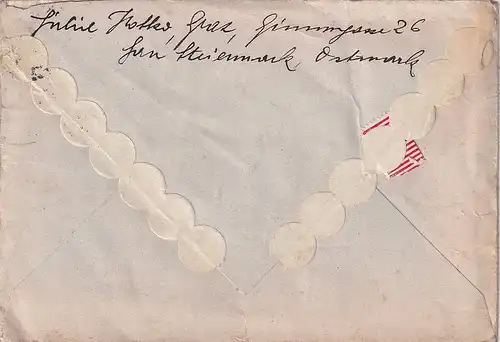 Julie Kotko, Graz, Grimmgasse 26
Gau Steiermark, Ostmark